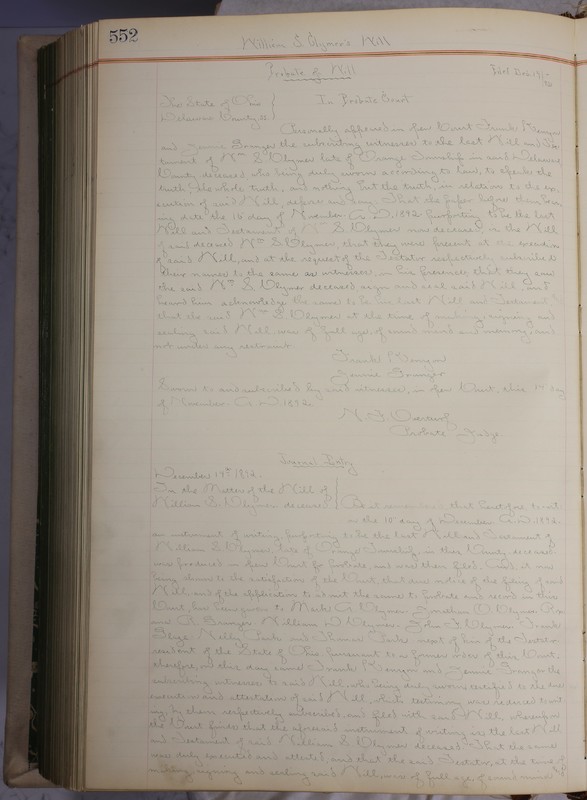 552
William S. Clymer's Will
Probate of Will
The State of Ohio
Delaware County, ss
In Probate Court
Personally appeared in open Court Frank
and Jennie Granger the subscribing witnesses to the last Will and Tes-
tament of Wm S. Clymer late of Orange Township in said Delaware
County deceased, who being duly sworn according to law, to speak the
truth, the whole truth, and nothing but the truth, in relation to the ex-
ecution of said Will, depose and say: That the paper before them bear-
ing date the 16 day of November A.D. 1892 purporting to be the last
Will and Testament of Wm S. Clymer now deceased, is the Will
of said deceased Wm S. Clymer, that they were present at the execution
of said Will, and at the request of the Testator respectively subscribed
their names to the same as witnesses, in his presence; that they saw
the said Wm S. Clymer deceased sign and seal said Will, and
heard him acknowledge the same to be his last Will and Testament,
that the said Wm S. Clymer at the time of making, signing and
sealing said Will was of full age, of sound mind and memory, and
not under any restraint
Frank
Jennie Granger
Sworn to and subscribed by said witnesses, in open Court, this 19 day
of November A.D. 1892.
Probate Judge
Journal Entry
December 19th 1892.
In the Matter of the Will of
William S. Clymer deceased
Be it remembered that heretofore to wit
on the 10 day of December A.D. 1892.
an instrument of writing purporting to be the last Will and Testament of
William S. Clymer, late of Orange Township, in this County, deceased
was produced in open Court for probate, and was then filed. And, it now
being shown to the satisfaction of the Court, that due notice of the filing of said
Will and of the application to admit the same to probate and record in this
Court, has been given to
Granger, William W. Clymer, John F. Clymer, Frank
next of kin of the Testator
resident of the State of Ohio pursuant to a former order of this Court,
therefore, on this day came Frank and Jennie Granger the
subscribing witnesses to said Will, who being duly sworn testified to the due
execution and attestation of said Will, which testimony was reduced to writ-
ing, by them respectively subscribed, and filed with said Will, whereupon
the Court finds that the aforesaid instrument of writing is the last Will
and Testament of said William S. Clymer deceased. That the same
was duly executed and attested, and that the said Testator, at the time of
making, signing and sealing said Will, was of full age, of sound mind